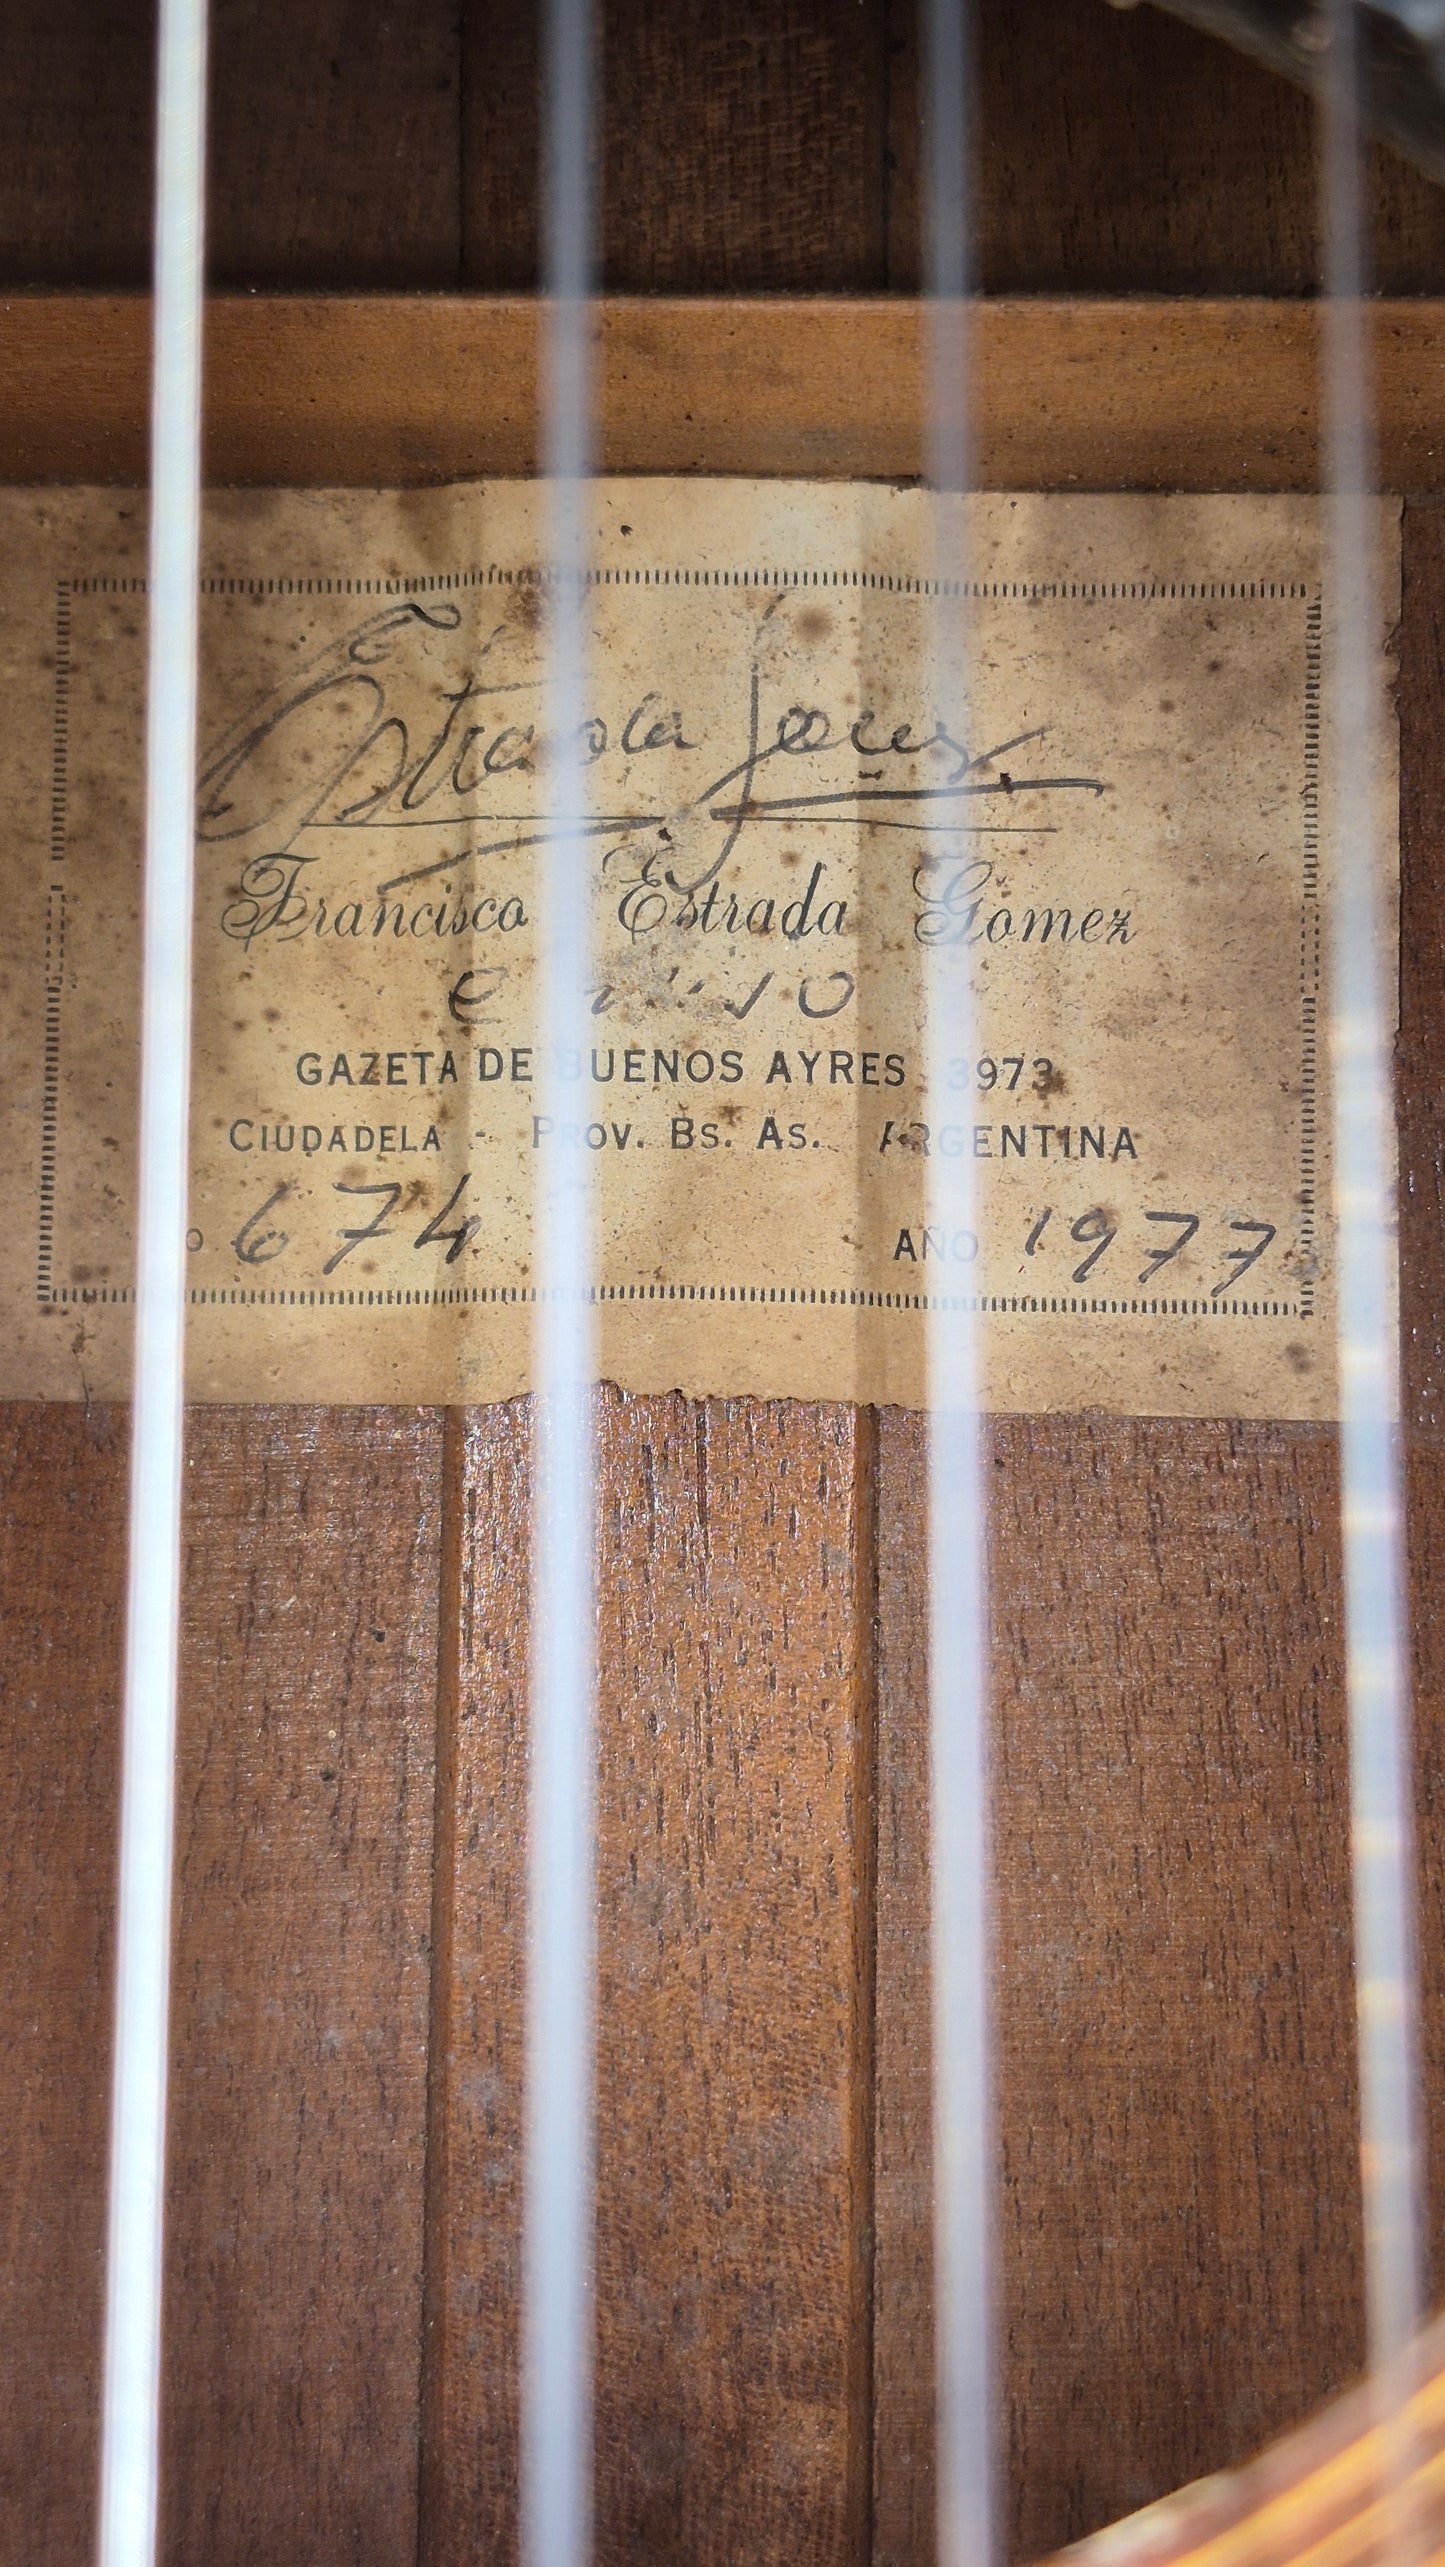 Estrada Gomez
Francisco Estrada Gomez
GAZETA DE BUENOS AYRES 3973
CIUDADELA - PROV. Bs. As. ARGENTINA
674 AÑO 1977